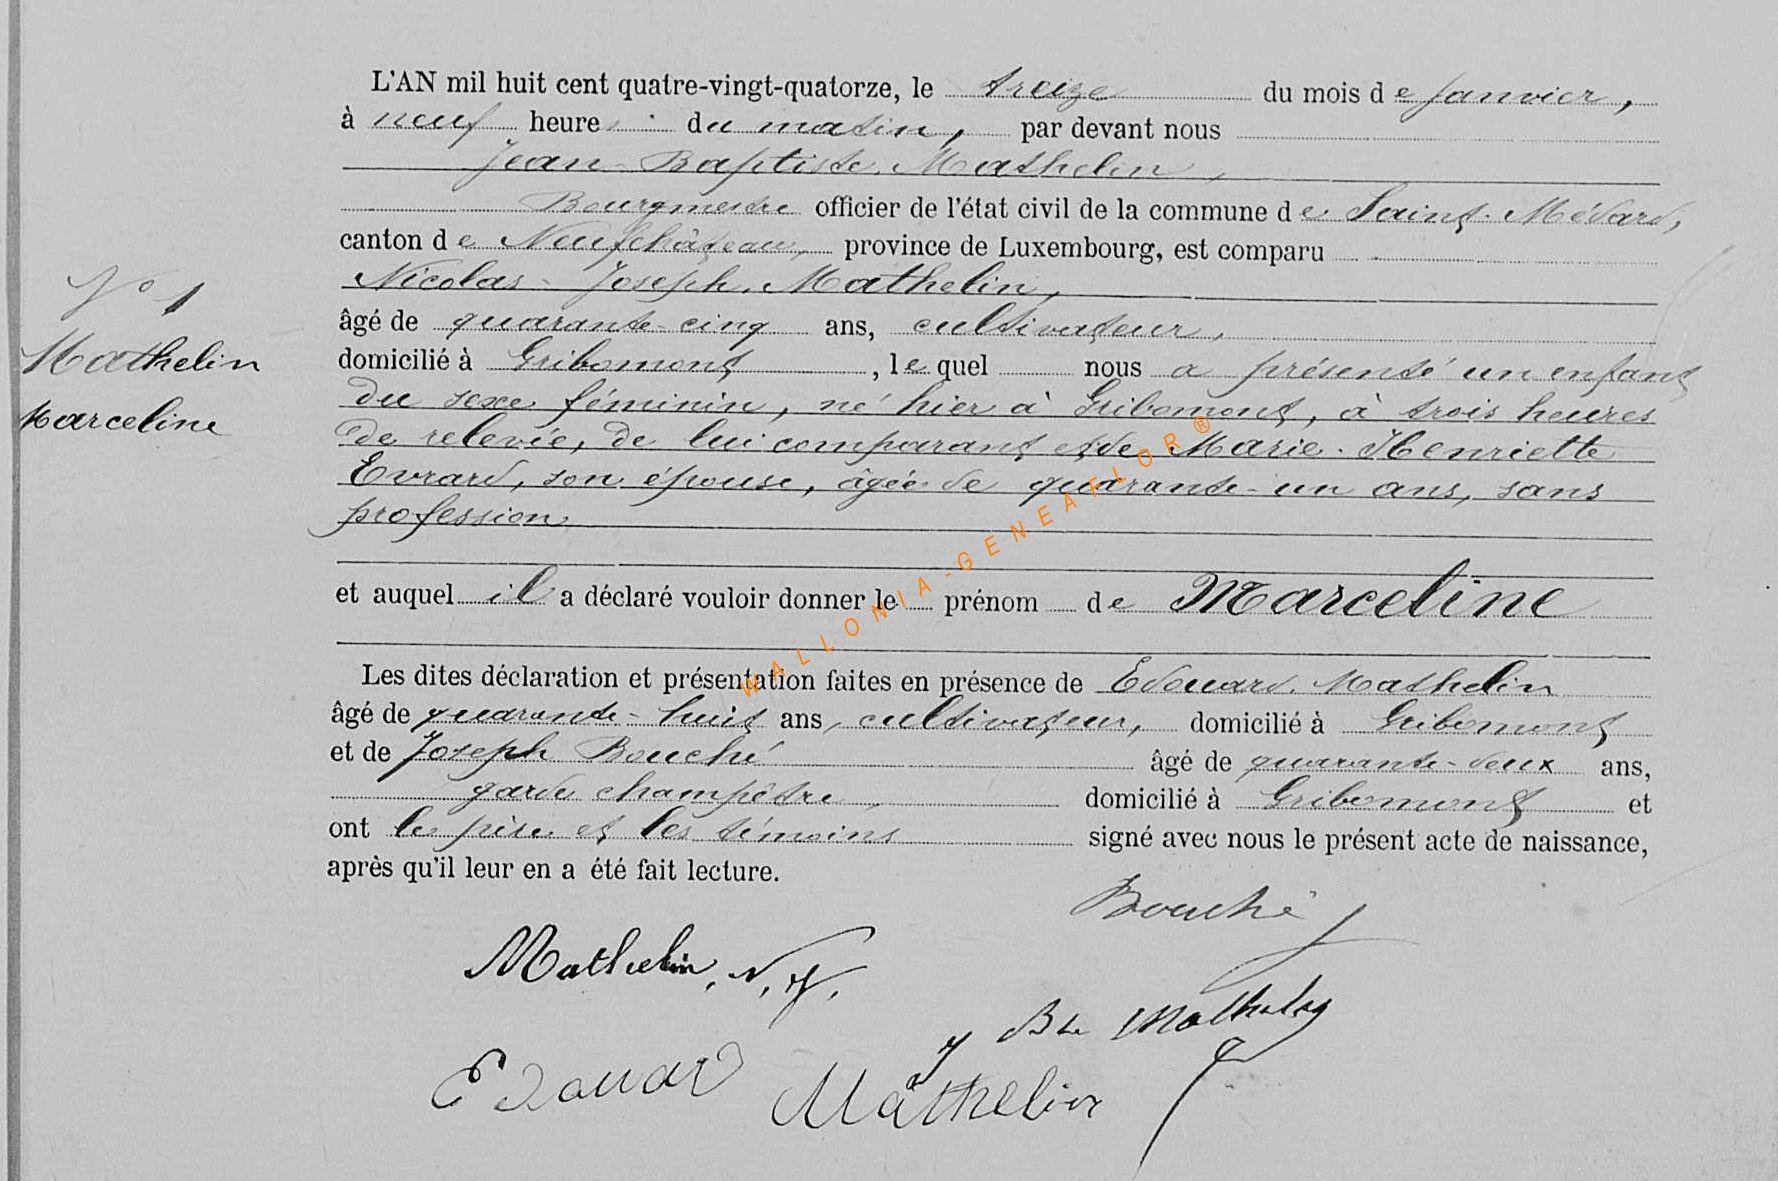 L'AN mil huit cent quatre-vingt-quatorze, le treize du mois de janvier,
à neuf heures du matin, par devant nous
Jean-Baptiste Mathelin,
Bourgmestre officier de l'état civil de la commune de Saint-Médard,
canton de Neufchâteau, province de Luxembourg, est comparu
Nicolas-Joseph Mathelin,
N° 1
âgé de quarante-cinq ans, cultivateur,
Mathelin
domicilié à Gribomont, lequel nous a présenté un enfant
Marceline
du sexe féminin, né hier à Gribomont, à trois heures
de relevée, de lui comparant et de Marie-Henriette
Evrard, son épouse, âgée de quarante-un ans, sans
profession
et auquel il a déclaré vouloir donner le prénom de Marceline
Les dites déclaration et présentation faites en présence de Edouard Mathelin
âgé de quarante-huit ans, cultivateur, domicilié à Gribomont
et de Joseph Bouché âgé de quarante-deux ans,
garde champêtre, domicilié à Gribomont et
ont le père et les témoins signé avec nous le présent acte de naissance,
après qu'il leur en a été fait lecture.
Bouché
Mathelin, N. J.
J Bte Mathelin
Edouard Mathelin
WALLONIA-GENEAFLOR®